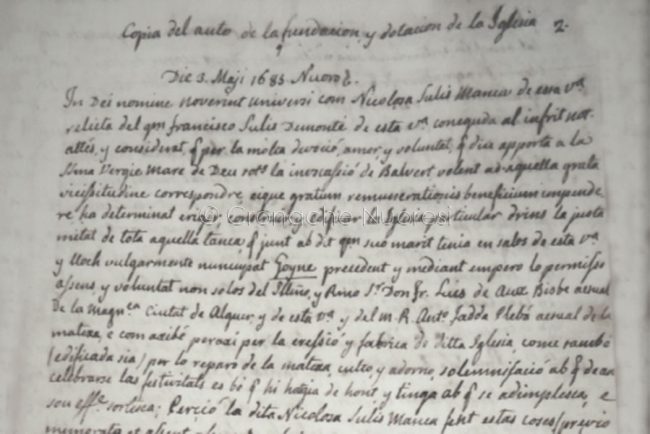 Copia del auto de la fundacion, y dotacion de la Iglesia 2.
Die 3. Maji 1683 Nuoro
In Dei nomine noverint universi com Nicolosa Sulis Manca de esta v.ª
relicta del qm francisco Sulis Demonte de esta v.ª coneguda al infrit not.
attes, y considerat q per la molta devocio, amor, y voluntat, q diu apporta a la
SSma Vergie Mare de Deu sots la invocassió de Balvert volent ab aquella grata
vicissitudine correspondre, eique gratum remunerationis beneficium impende
re ha determinat erigir, construir, y edificar Iglesia particular dins la justa
mitat de tota aquella tanca q junt ab dit qm suo marit tenia en saltos de esta v.ª
y lloch vulgarmente nuncupat Goyne precedent y mediant empero lo permisso
assens, y voluntat non solos del Illmo, y Rmo Sr Don Fr. Luis de Bisbe actual
De la Magn.ca Ciutat de Alguer, y de esta v.ª y del m. R. Anto. fadda Plebà actual de la
mateixa, e com axibé peraxi per la erecsió y fabrica de ditta Iglesia come també
(edificada sia) por lo reparo de la mateixa, culto, y adorno, solemnisació ab q de an
celebrarse las festivitats es bé q hi hagia de hont, y tinga ab q se adimplesca, e
son effte. sortesca; Perçio la dita Nicolosa Sulis Manca fent estas coses (previo
© Cronache Nuoresi